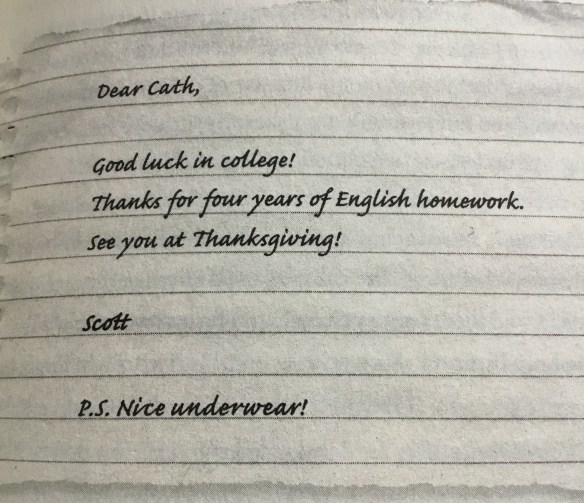 Dear Cath,
Good luck in college!
Thanks for four years of English homework.
See you at Thanksgiving!
Scott
P.S. Nice underwear!